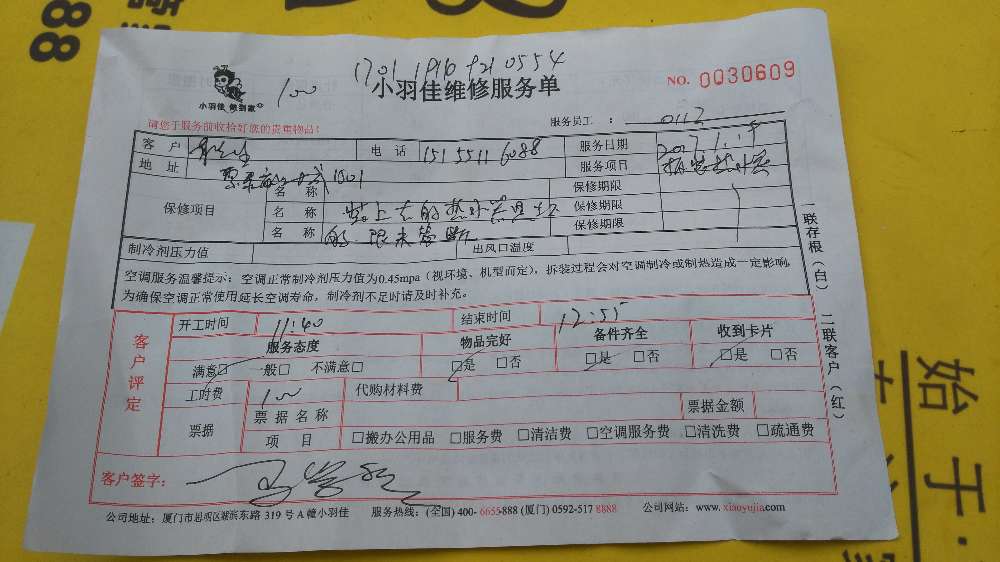 1701 1916 9210554
100
小羽佳 做到家
小羽佳维修服务单
NO. 0030609
请您于服务前收拾好您的贵重物品!
服务员工 : 0112
客 户 电 话 15155116088 服务日期 2017.1.
地 址 1801 服务项目
保修项目 名 称 保修期限
名 称 保修期限
名 称 保修期限
制冷剂压力值 出风口温度
空调服务温馨提示:空调正常制冷剂压力值为0.45mpa(视环境、机型而定),拆装过程会对空调制冷或制热造成一定影响,
为确保空调正常使用延长空调寿命,制冷剂不足时请及时补充。
一联存根(白) 二联客户(红)
客户评定
开工时间 11:40 结束时间 12:55
服务态度 物品完好 备件齐全 收到卡片
满意□ 一般□ 不满意□ □是 □否 □是 □否 □是 □否
工时费 100 代购材料费
票据 票据名称 票据金额
项 目 □搬办公用品 □服务费 □清洁费 □空调服务费 □清洗费 □疏通费
客户签字:
公司地址:厦门市思明区湖滨东路 319 号 A 幢小羽佳 服务热线:(全国) 400- 6655-888 (厦门) 0592-517 8888 公司网站:www.xiaoyujia.com
88
始于